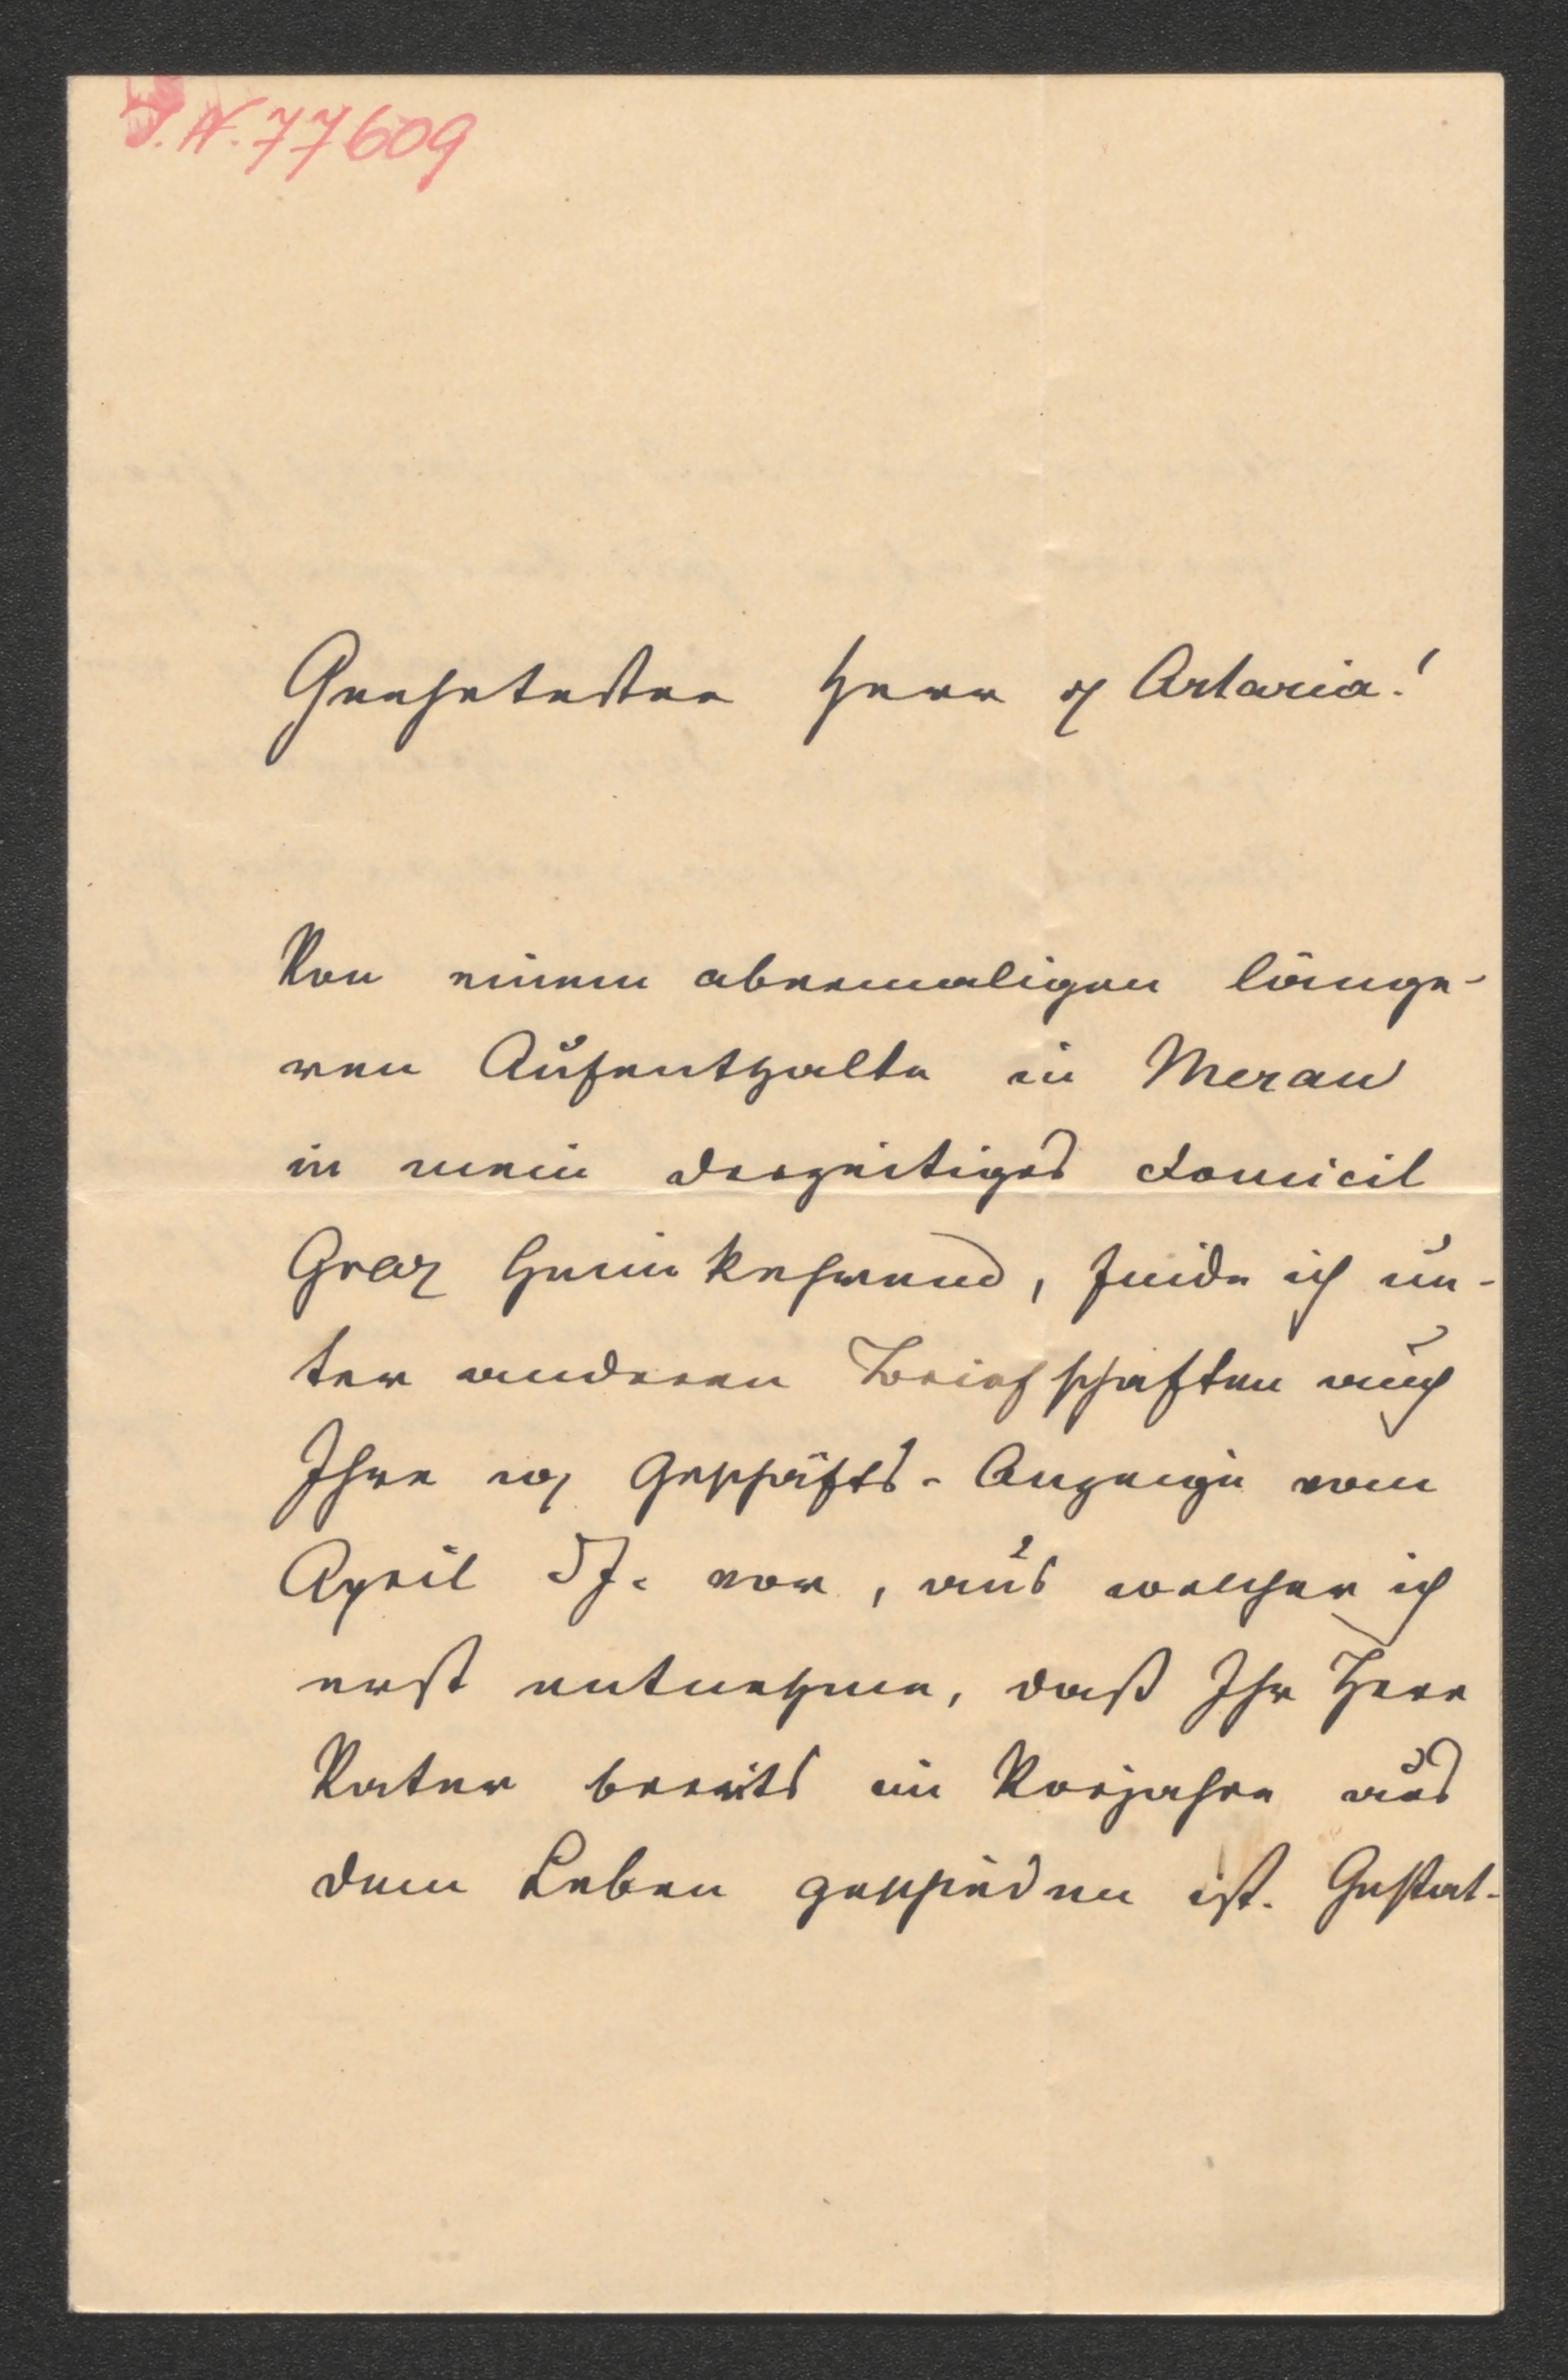 I. N. 77609
Geehrtester Herr v Artaria!
Von einem abermaligen länge-
ren Aufenthalte in Meran
in mein derzeitiges Domicil
Graz heimkehrend, finde ich un-
ter anderen Briefschaften auch
Ihre Geschäfts-Anzeige vom
April d J. vor, aus welcher ich
erst entnehme, daß Ihr Herr
Vater bereits im Vorjahre aus
dem Leben geschieden ist. Gestat-